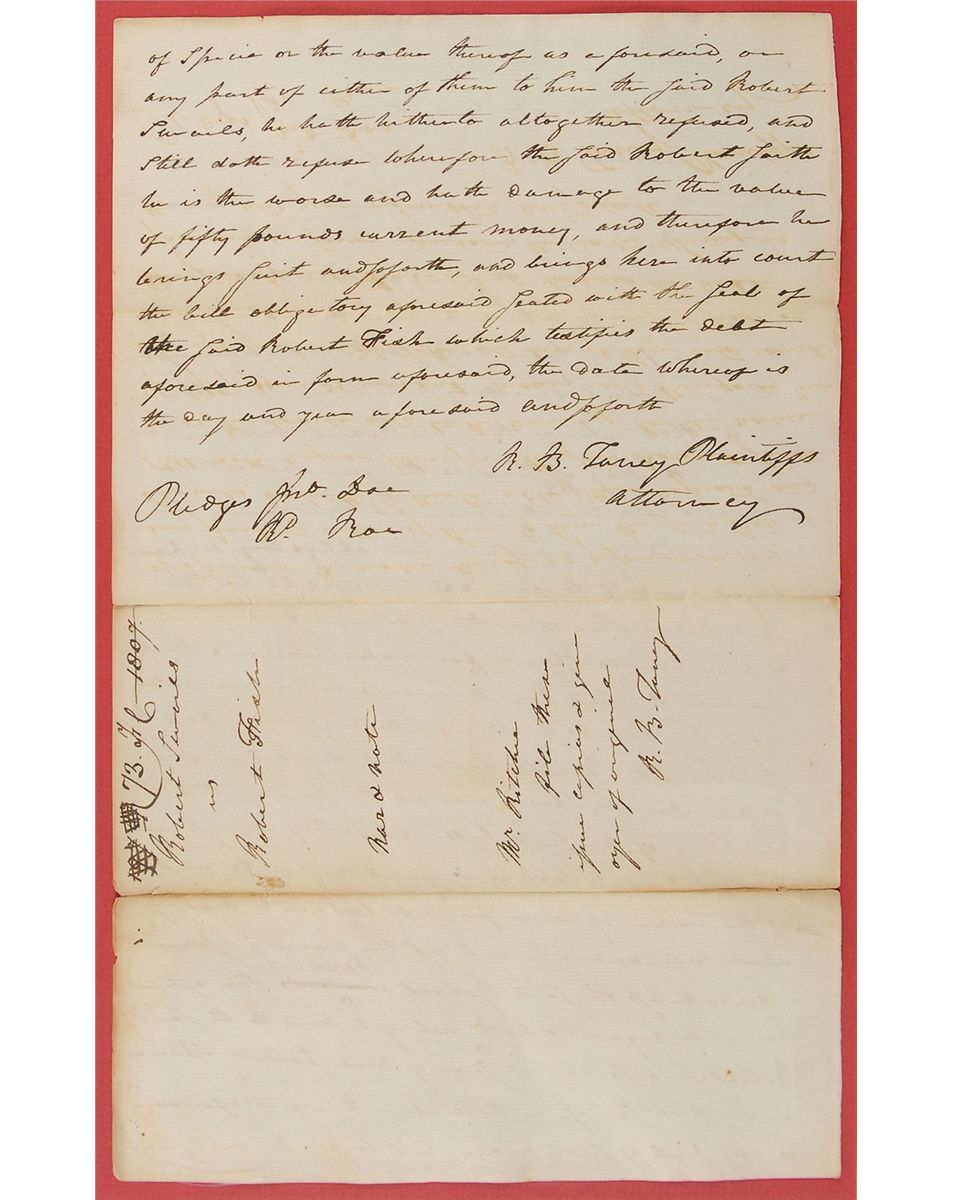 of Specie or the value thereof as aforesaid, or
any part of either of them to him the said Robert
Swails, he hath hitherto altogether refused, and
still doth refuse wherefore the said Robert saith
he is the worse and hath damage to the value
of fifty pounds current money, and therefore he
brings suit andsoforth, and brings here into court
the bill obligatory aforesaid sealed with the seal of
the said Robert Fish which testifies the debt
aforesaid in form aforesaid, the date whereof is
the day and year aforesaid andsoforth
R. B. Taney Plaintiffs
Attorney
Pledges Jno. Doe
Rd. Roe
73. 1807.
Robert Swails
vs
Robert Fish
Nar & note
Mr. Ritchie
file these
issue copies & give
oyer of original
R. B. Taney